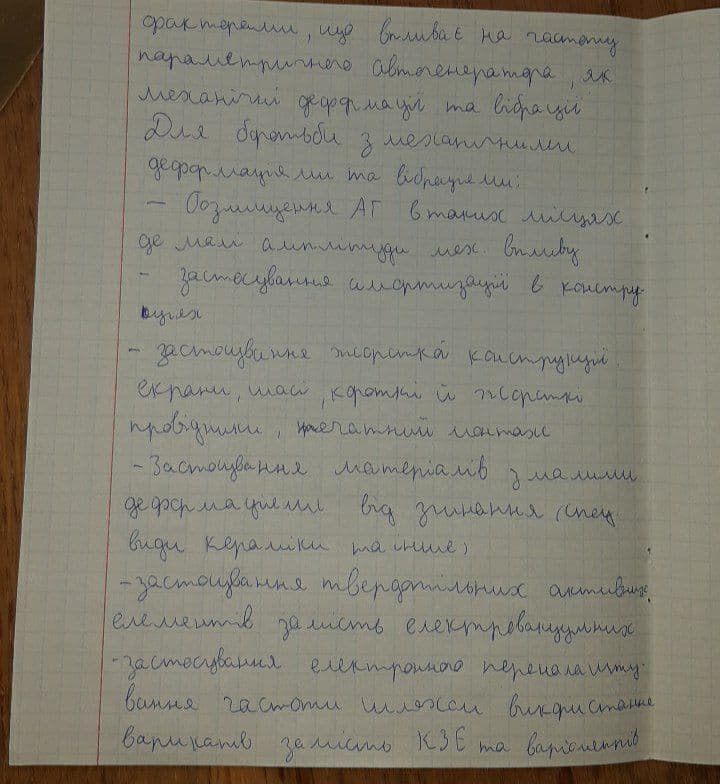 факторами, що впливає на частоту
параметричного автогенератора, як
механічні деформації та вібрації
Для боротьби з механічними
деформаціями та вібраціями:
— Розміщення АГ в таких місцях
де малі амплітуди мех. впливу
- застосування амортизації в констру-
кціях
- застосування жорсткої конструкції
екрани, шасі, короткі й жорсткі
провідники, печатний монтаж
- Застосування матеріалів з малими
деформаціями від згинання (спец.
види кераміки та інше)
- застосування твердотільних активних
елементів замість електровакуумних
- застосування електронного переналашту-
вання частоти шляхом використання
варикапів замість КЗЄ та варіометрів